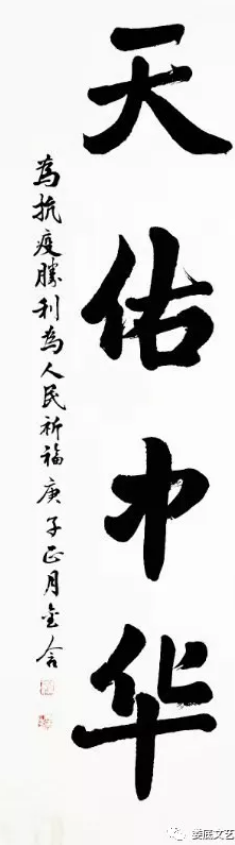 天佑中华
為抗疫勝利為人民祈福庚子正月金合
娄底文艺